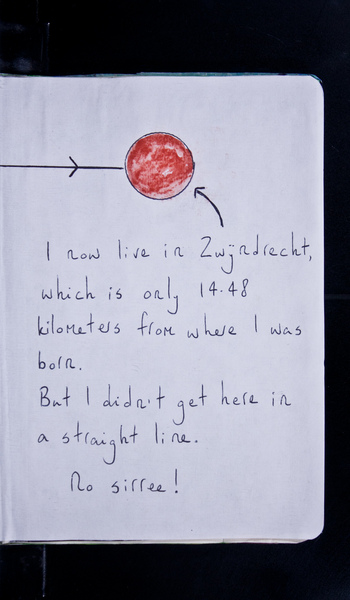 I now live in Zwijndrecht,
which is only 14.48
kilometers from where I was
born.
But I didn't get here in
a straight line.
No sirree!